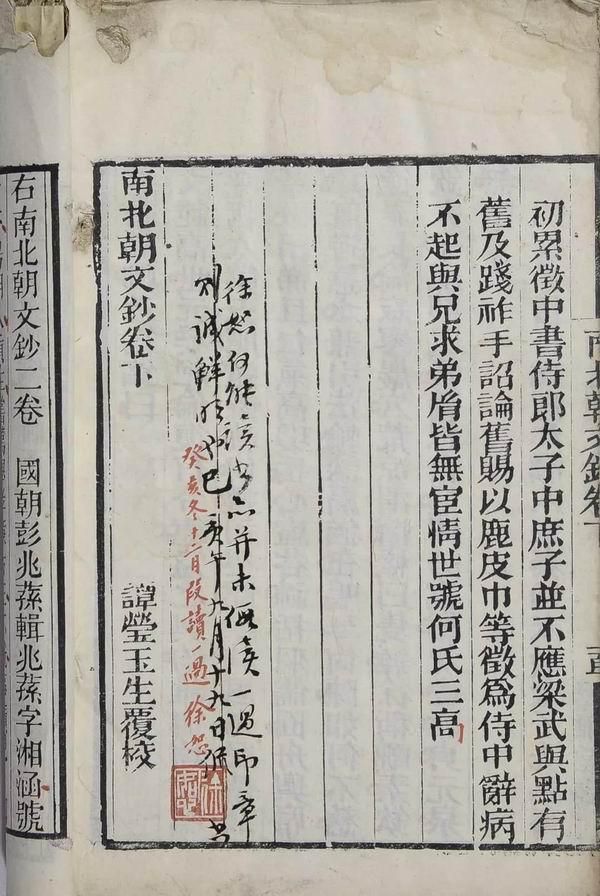 南北朝文鈔卷下
初累徵中書侍郎太子中庶子並不應梁武與點有
舊及踐祚手詔論舊賜以鹿皮巾等徵爲侍中辭病
不起與兄求弟胤皆無宦情世號何氏三高
徐恕何能讀書亦并未偶讀一過印章
則誠鮮明而已庚午九月十九日
癸亥冬十二月段讀一過徐恕
南北朝文鈔卷下
譚瑩玉生覆校
右南北朝文鈔二卷 國朝彭兆蓀輯兆蓀字湘涵號